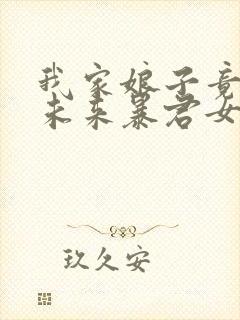 我家娘子竟
未来暴君女
玖久安